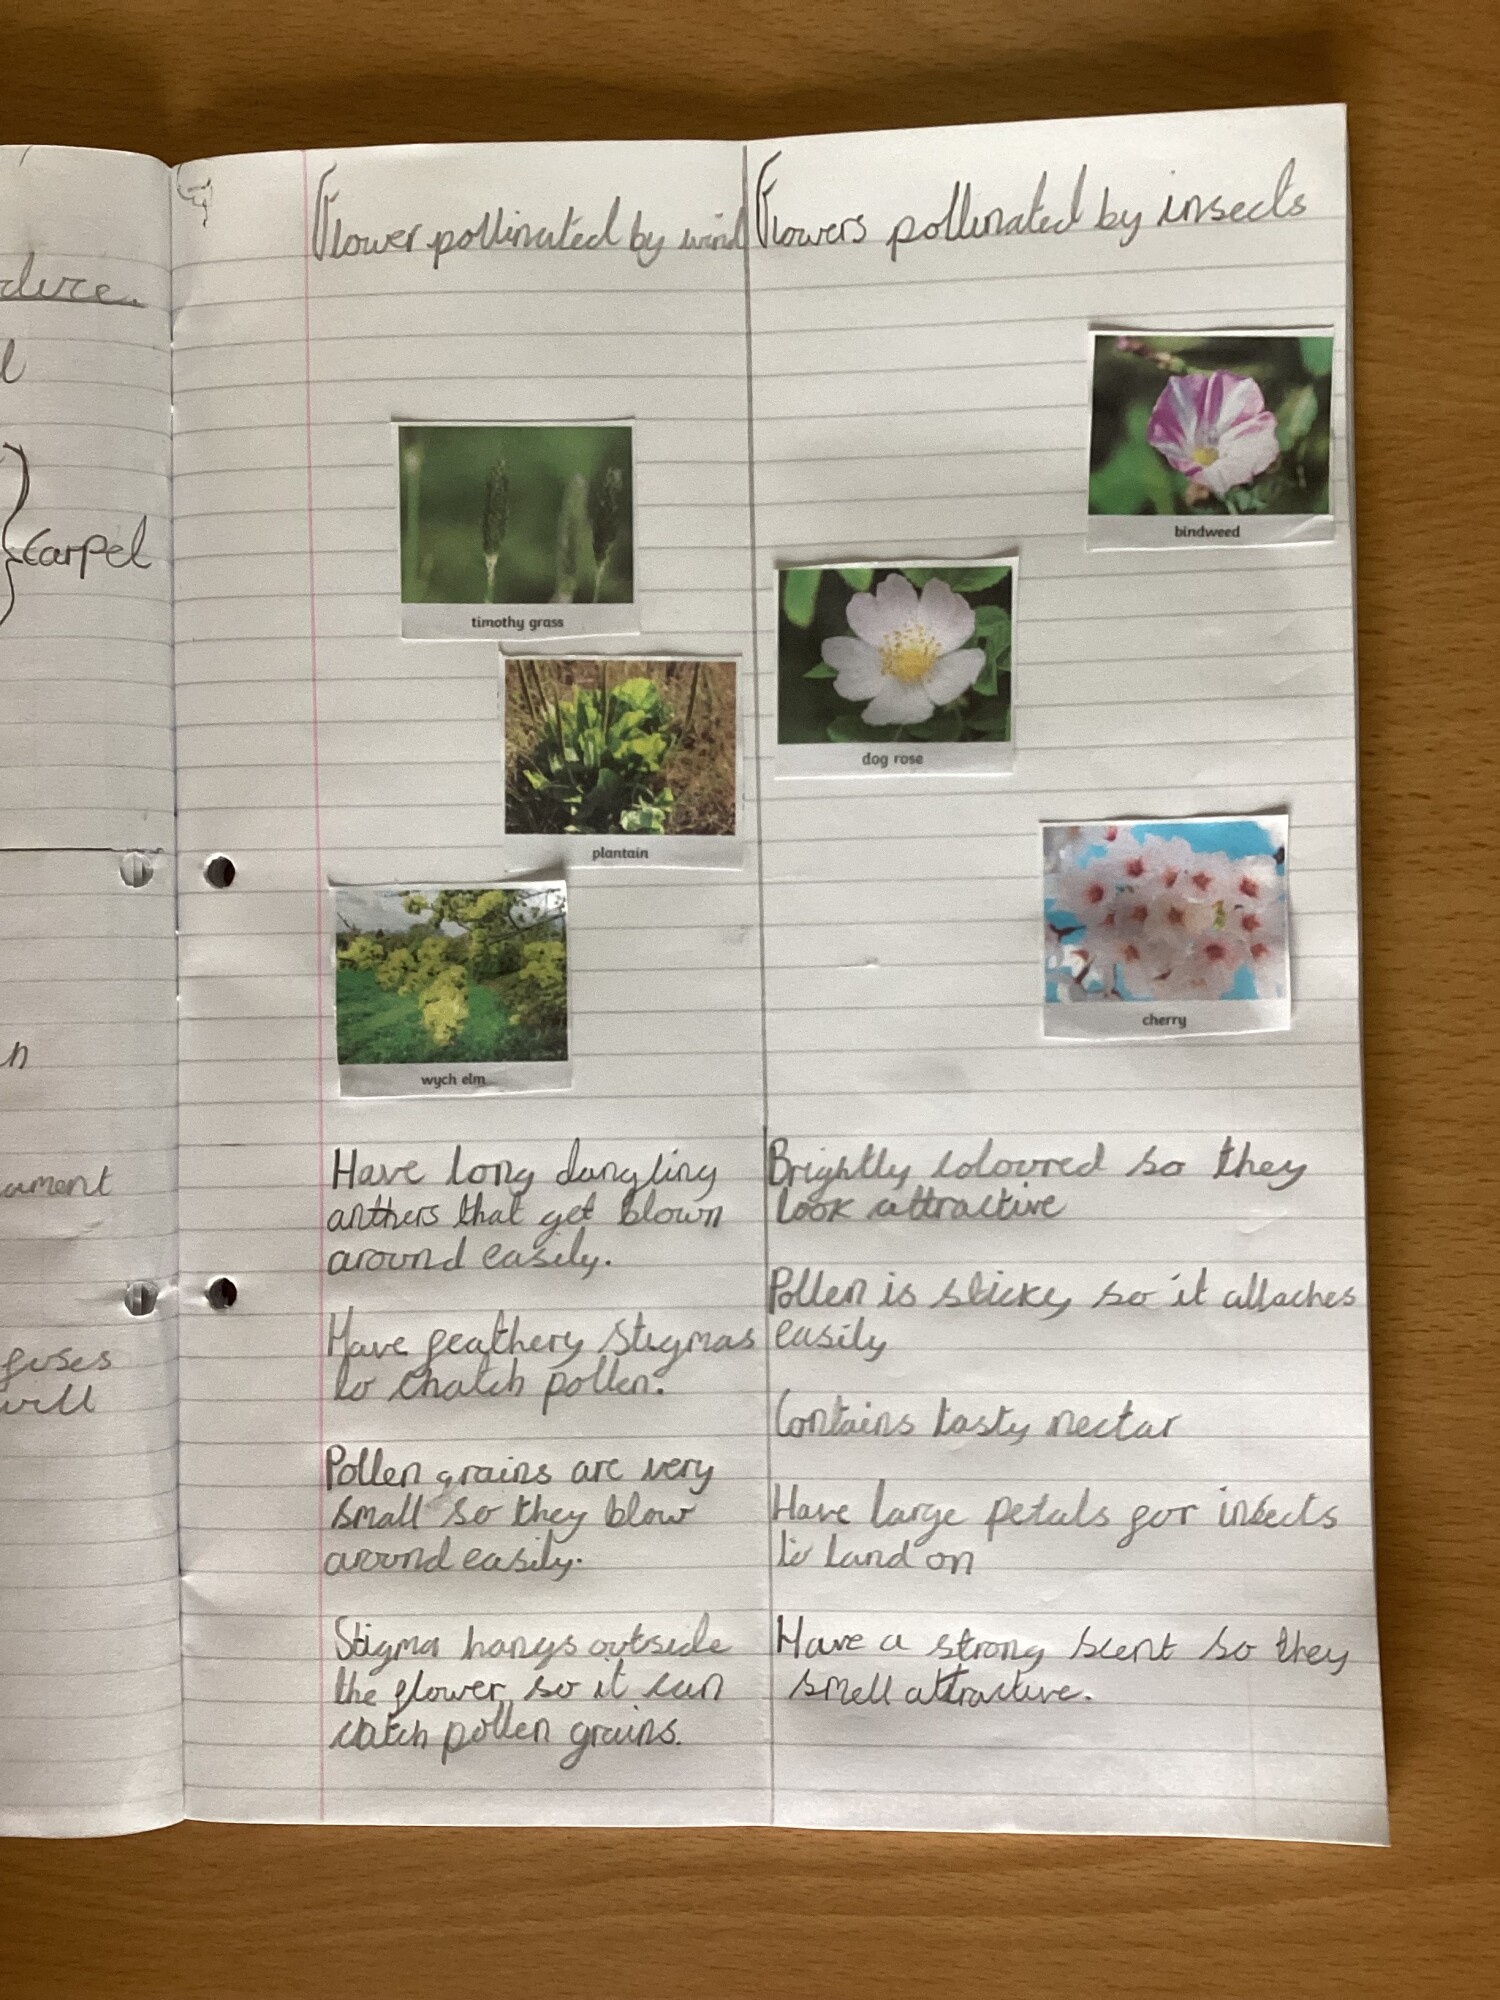 duce.
l
Carpel
n
ament
fuses
will
Flower pollinated by wind
timothy grass
plantain
wych elm
Have long dangling
anthers that get blown
around easily.
Have feathery stigmas
to chatch pollen.
Pollen grains are very
small so they blow
around easily.
Stigma hangs outside
the flower so it can
catch pollen grains.
Flowers pollinated by insects
bindweed
dog rose
cherry
Brightly coloured so they
look attractive
Pollen is sticky so it attaches
easily
Contains tasty nectar
Have large petals for insects
to land on
Have a strong scent so they
smell attractive.